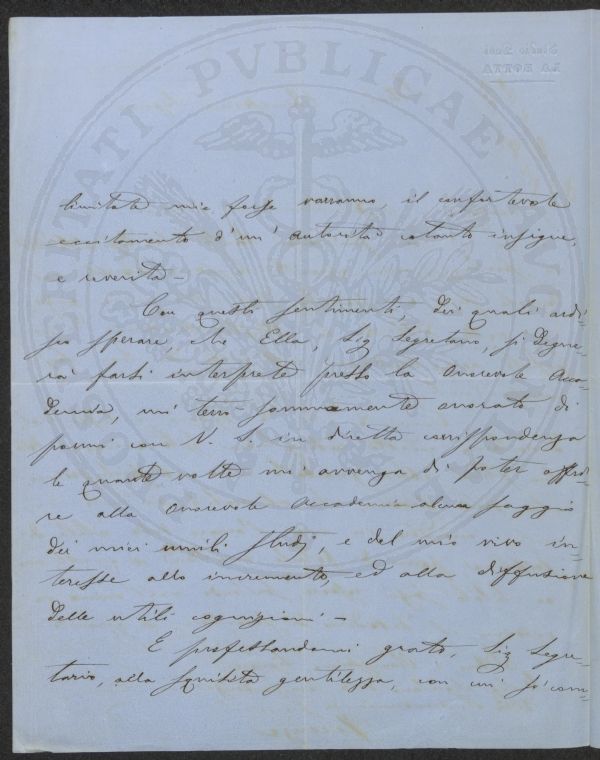 PROSPERITATI PVBLICAE AVG
limitate mie forze varranno, il confortevole
eccitamento d'un' autorità cotanto insigne,
e reverita —
Con questi sentimenti, dei quali ardi-
sco sperare, che Ella, Sig Segretario, si degne-
rà farsi interprete presso la onorevole Acca-
demia, mi terrò sommamente onorato di
pormi con V. S. in diretta corrispondenza
le quante volte mi avvenga di poter offri-
re alla onorevole Accademia alcun saggio
dei miei umili studj, e del mio vivo in-
teresse allo incremento, ed alla diffusione
delle utili cognizioni —
E professandomi grato, Sig Segre-
tario, alla squisita gentilezza, con cui si com-